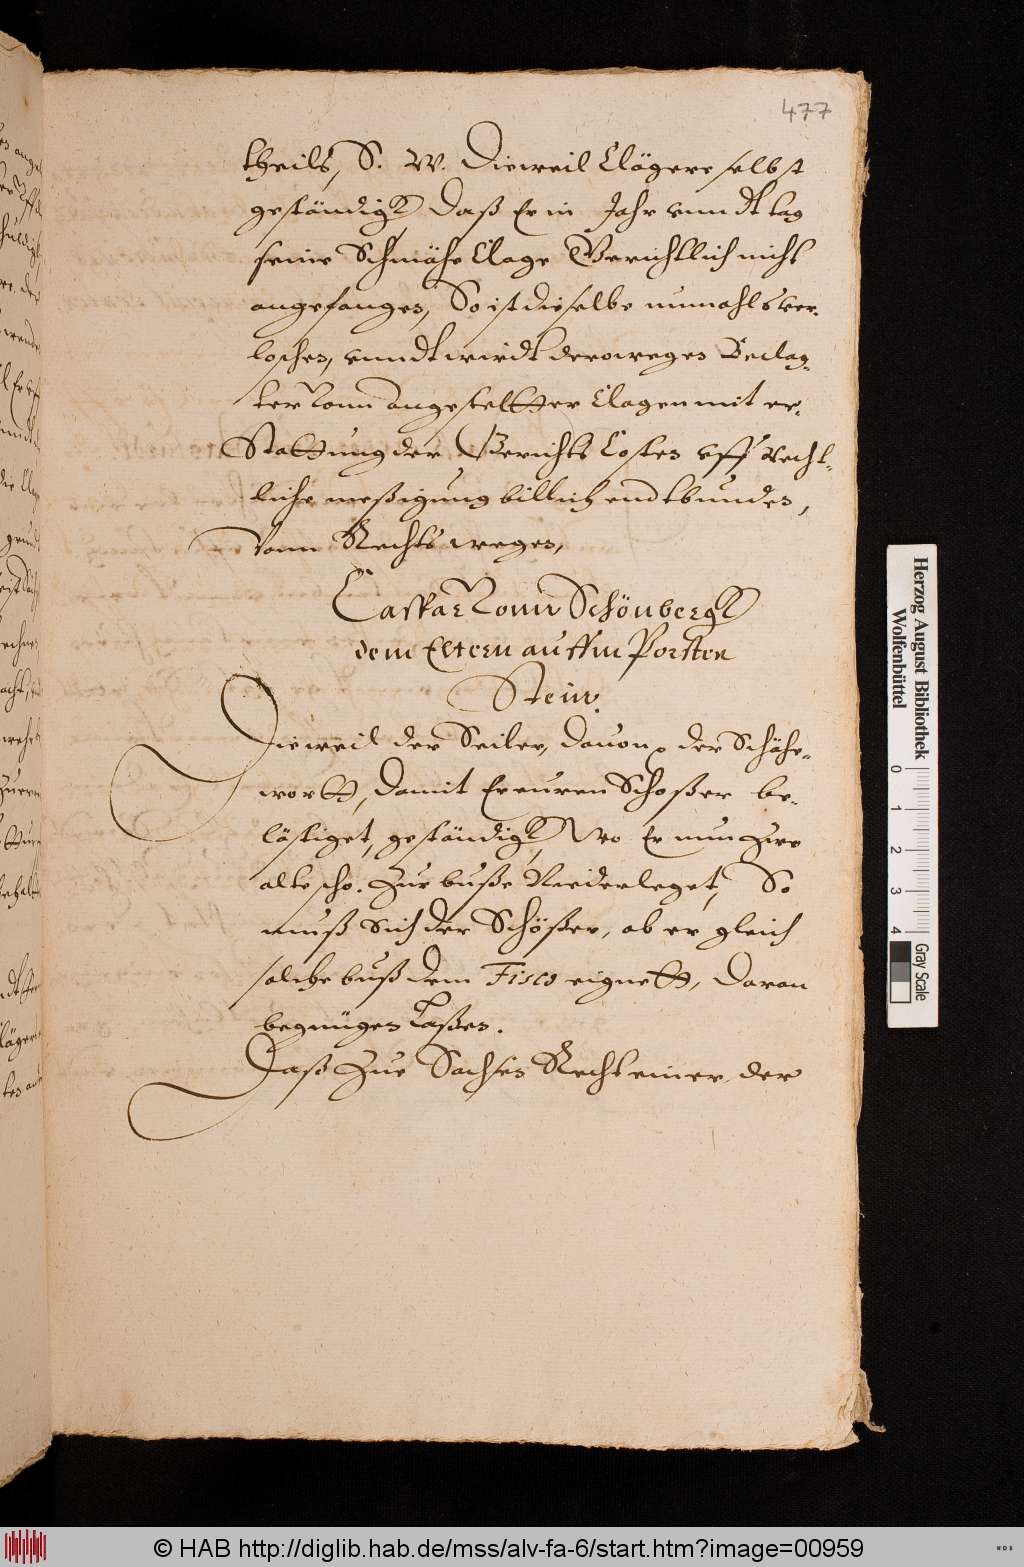 477
theils, S. W. Dieweil Clägere selbst
geständigk, Daß Er in Jahr vnndt tag
seine Schmähe Clage Gerichtlich nicht
angefangen, So ist dieselbe nunmahls ver-
loschen, vnndt wirdt derowegen Beclag-
ter vonn angestellter Clagen mit er-
Stattung der Gerichts Costen vff recht-
liche meßigung billich endtbunden,
Vonn Rechts wegen,
Caspar vonn Schönbergk
dem Eltern auffm Porsten
Stein.
Dieweil der Seiler, dauon der Schähe-
wortt, damit Er euren Schoßer be-
lästiget, geständigk, Wo Er nun zwe
alte scho. zur buße Niederleget, So
muß Sich der Schößer, ob er gleich
solche buß dem Fisco eignett, daran
begnügen Laßen.
Daß Zue Sachsen Recht einer der
Herzog August Bibliothek
Wolfenbüttel
0 1 2 3 4
Gray Scale
© HAB http://diglib.hab.de/mss/alv-fa-6/start.htm?image=00959